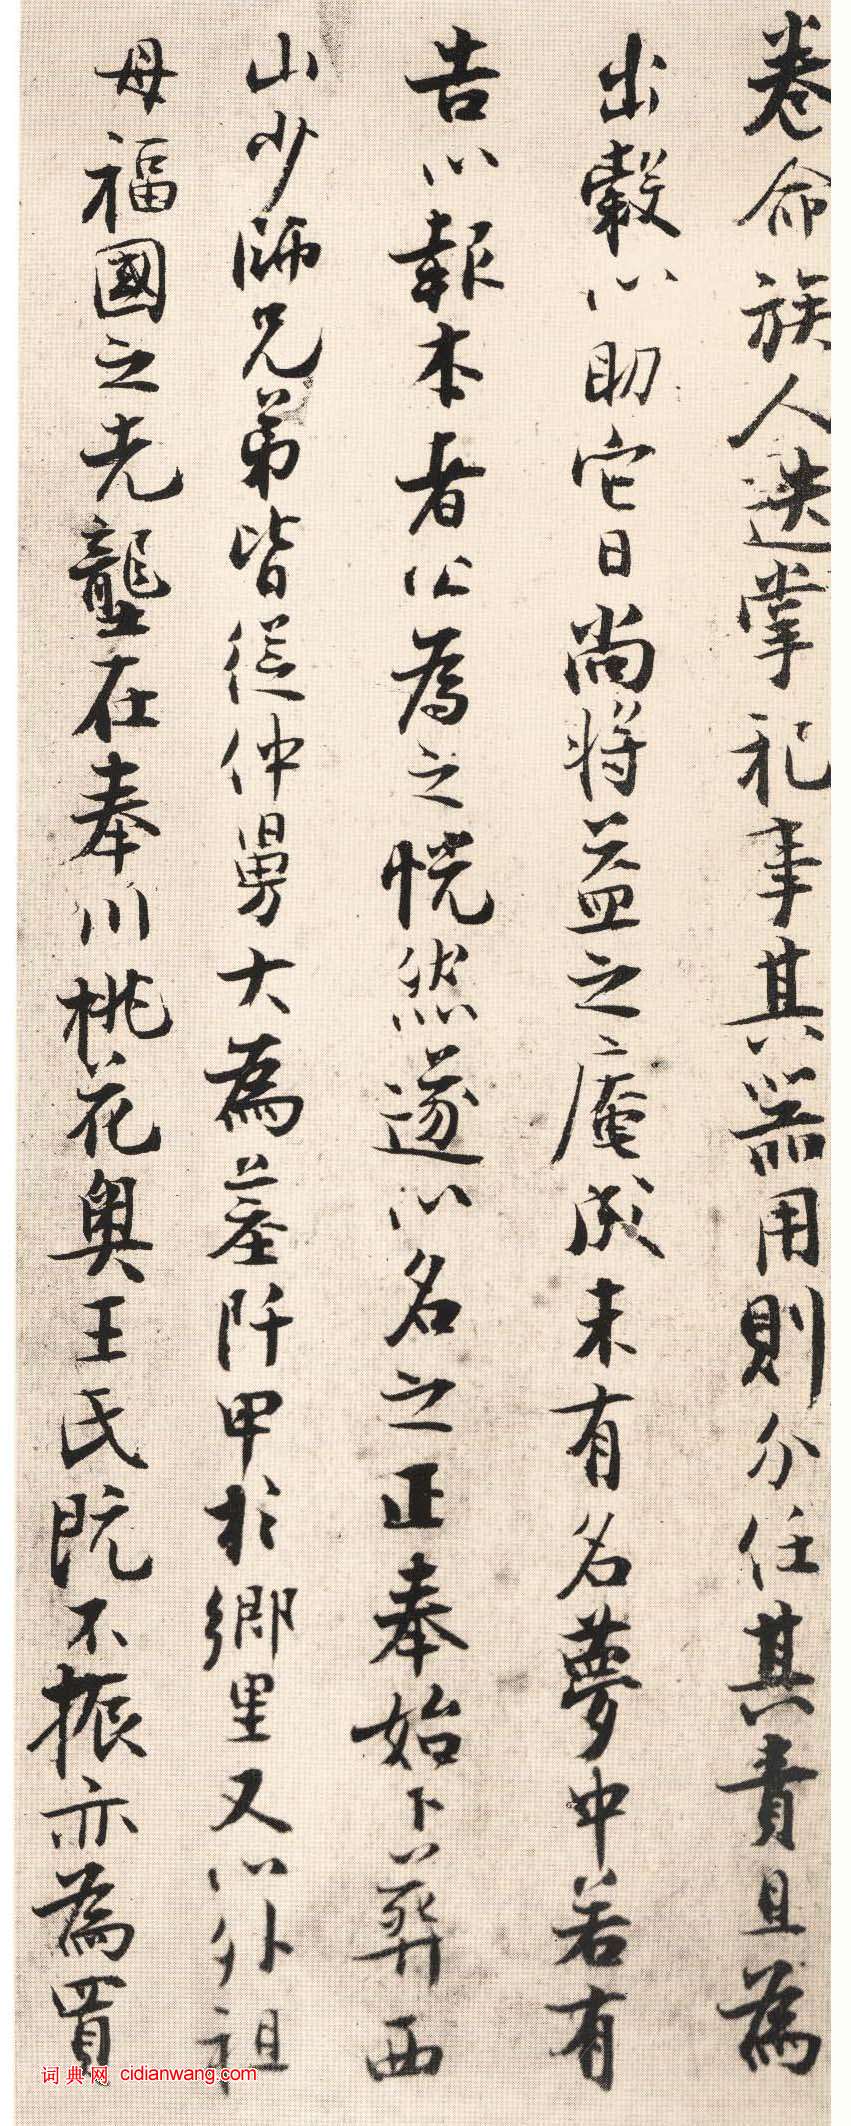 卷命族人迭掌祀事其器用則分任其責且為
出穀以助它日尚將益之庵成未有名夢中若有
告以報本者公為之恍然遂以名之正奉始卜葬西
山少師兄弟皆從仲舅大為墓阡甲於鄉里又以外祖
母福國之先壟在奉川桃花奧王氏既不振亦為買
词典网 cidianwang.com